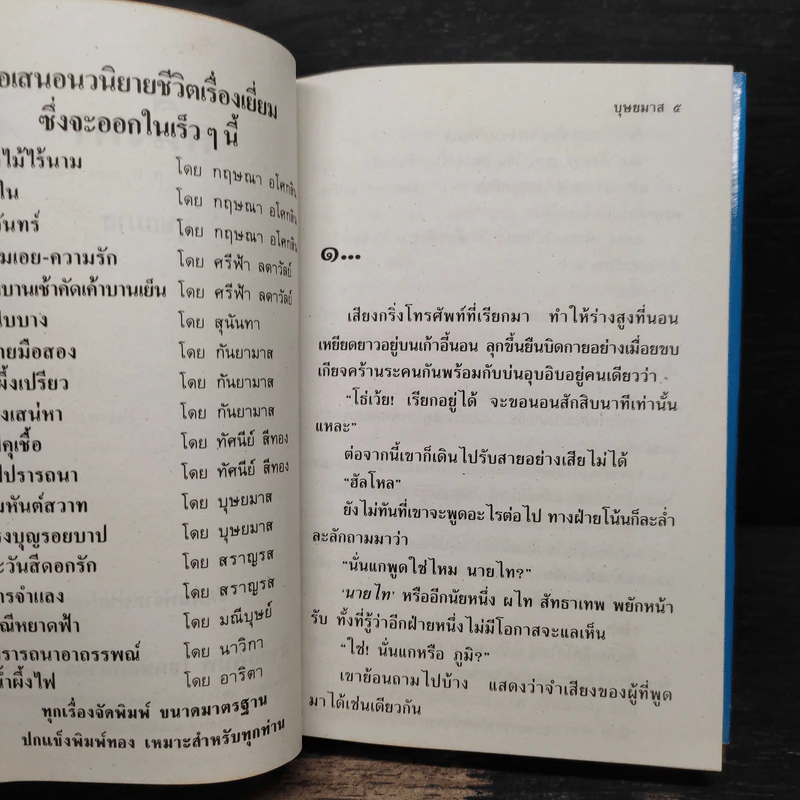 อเสนอนวนิยายชีวิตเรื่องเยี่ยม
ซึ่งจะออกในเร็ว ๆ นี้
ไม้ไร้นาม โดย กฤษณา อโศกสิน
ใน โดย กฤษณา อโศกสิน
ันทร์ โดย กฤษณา อโศกสิน
มเอย-ความรัก โดย ศรีฟ้า ลดาวัลย์
บานเช้าคัดเค้าบานเย็น โดย ศรีฟ้า ลดาวัลย์
ใบบาง โดย สุนันทา
ายมือสอง โดย กันยามาส
ผึ้งเปรียว โดย กันยามาส
งเสน่หา โดย กันยามาส
คุเชื้อ โดย ทัศนีย์ สีทอง
ปรารถนา โดย ทัศนีย์ สีทอง
มหันต์สวาท โดย บุษยมาส
งบุญรอยบาป โดย บุษยมาส
ะวันสีดอกรัก โดย สราญรส
การจำแลง โดย สราญรส
ณีหยาดฟ้า โดย มณีบุษย์
รารถนาอาถรรพณ์ โดย นาวิกา
น้ำผึ้งไฟ โดย อาริตา
ทุกเรื่องจัดพิมพ์ ขนาดมาตรฐาน
ปกแข็งพิมพ์ทอง เหมาะสำหรับทุกท่าน
บุษยมาส ๕
๑...
เสียงกริ่งโทรศัพท์ที่เรียกมา ทำให้ร่างสูงที่นอน
เหยียดยาวอยู่บนเก้าอี้นอน ลุกขึ้นยืนบิดกายอย่างเมื่อยขบ
เกียจคร้านระคนกันพร้อมกับบ่นอุบอิบอยู่คนเดียวว่า
“โธ่เว้ย! เรียกอยู่ได้ จะขอนอนสักสิบนาทีเท่านั้น
แหละ”
ต่อจากนี้เขาก็เดินไปรับสายอย่างเสียไม่ได้
“ฮัลโหล”
ยังไม่ทันที่เขาจะพูดอะไรต่อไป ทางฝ่ายโน้นก็ละล่ำ
ละลักถามมาว่า
“นั่นแกพูดใช่ไหม นายไท?”
‘นายไท’ หรืออีกนัยหนึ่ง ผไท สัทธาเทพ พยักหน้า
รับ ทั้งที่รู้ว่าอีกฝ่ายหนึ่งไม่มีโอกาสจะแลเห็น
“ใช่! นั่นแกหรือ ภูมิ?”
เขาย้อนถามไปบ้าง แสดงว่าจำเสียงของผู้ที่พูด
มาได้เช่นเดียวกัน